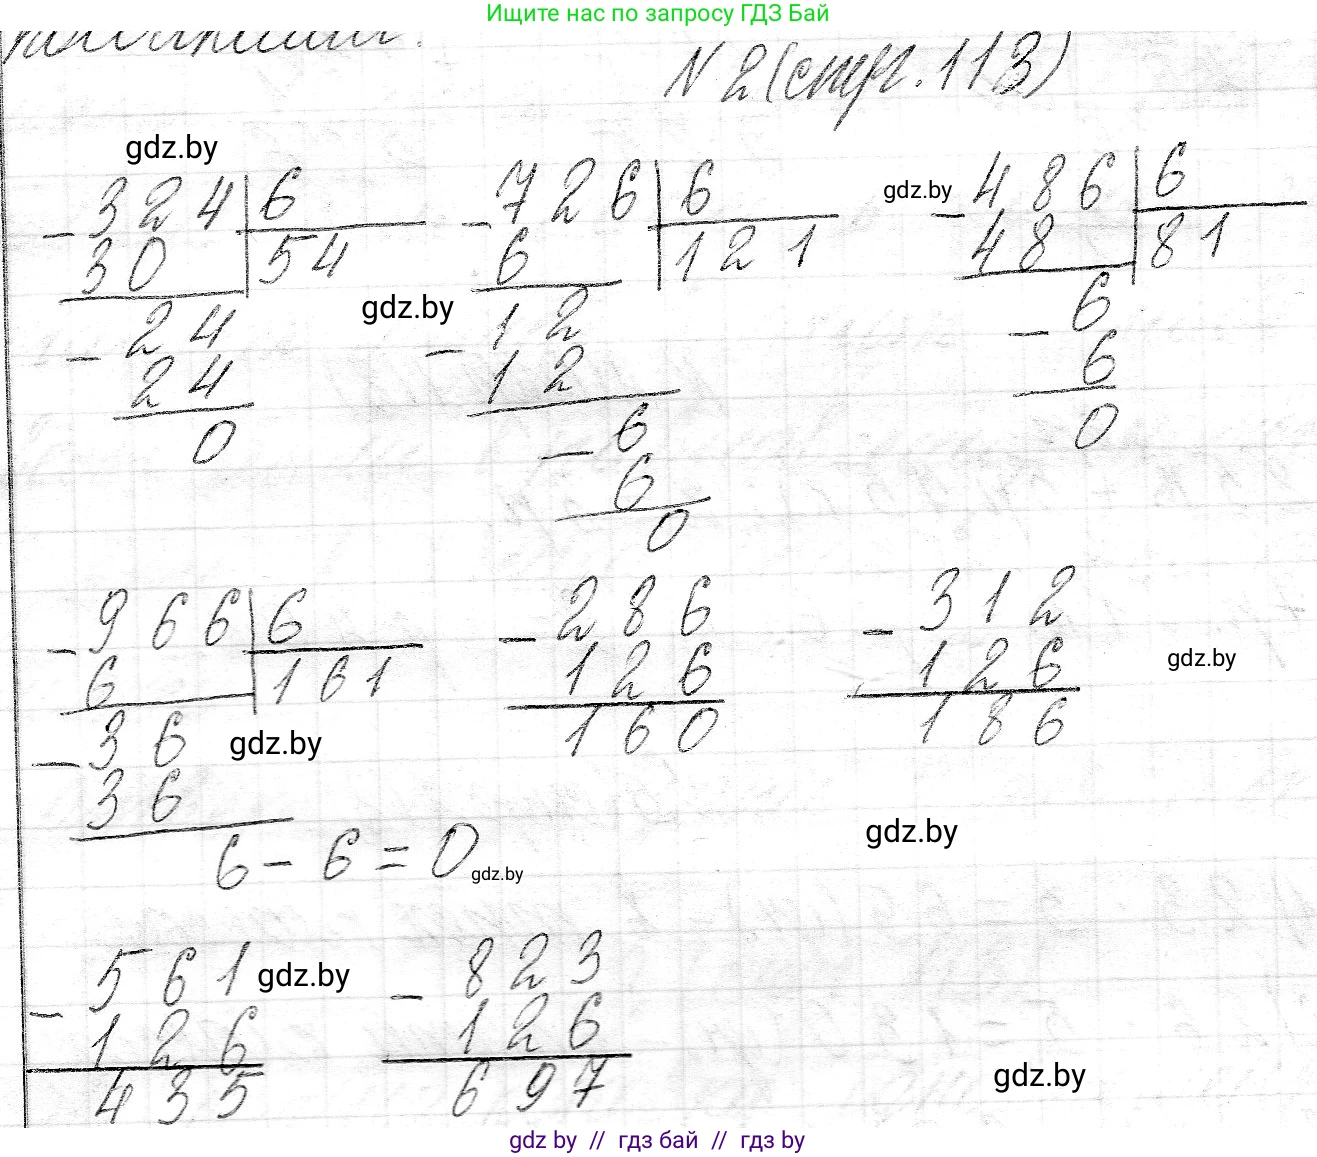 Ищите нас по запросу ГДЗ Бай
N 2 (стр. 113)
gdz.by
- 324 | 6
30 54
- 24
24
0
- 726 | 6
6 121
gdz.by
- 12
12
- 6
6
0
gdz.by
- 486 | 6
48 81
- 6
6
0
- 966 | 6
6 161
- 36
gdz.by
36
6 - 6 = 0
gdz.by
- 286
126
160
- 312
126
186
gdz.by
gdz.by
- 561
gdz.by
126
435
- 823
126
697
gdz.by
gdz by // гдз бай // гдз by